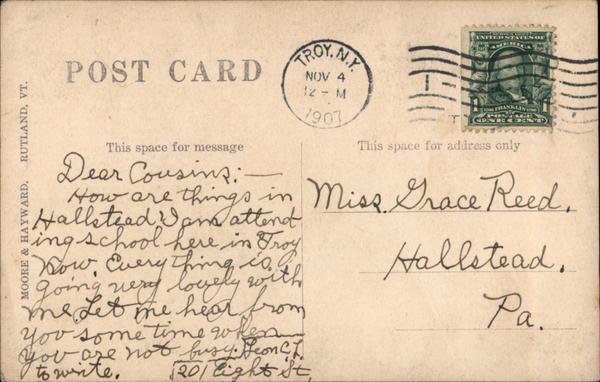 POST CARD
TROY, N.Y.
NOV 4
12 - M
1907
UNITED STATES OF
AMERICA
1 FRANKLIN 1
POSTAGE
ONE CENT
MOORE & HAYWARD, RUTLAND, VT.
This space for message
Dear Cousins:—
How are things in
Hallstead? I am attend
ing school here in Troy
now. Everything is
going very lovely with
me. Let me hear from
you some time when
you are not busy. Leon C. T.
to write. 1201 Eight St.
This space for address only
Miss. Grace Reed.
Hallstead.
Pa.